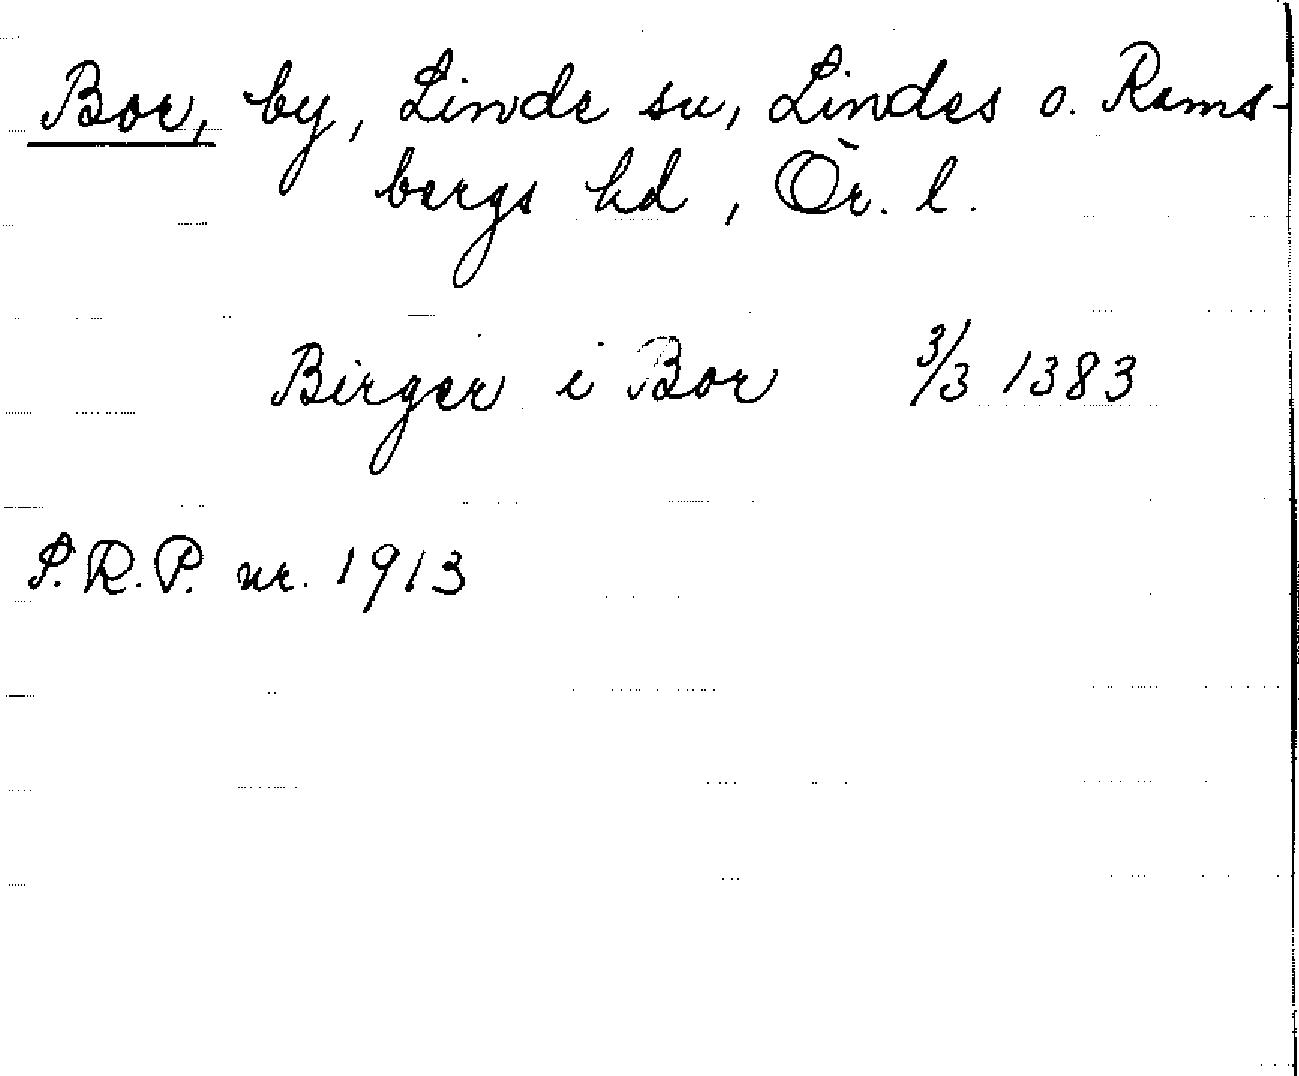 Bor, by, Linde sn, Lindes o. Rams-
bergs hd, Ör. l.
Birger i Bor 3/3 1383
S.R.P. nr. 1913